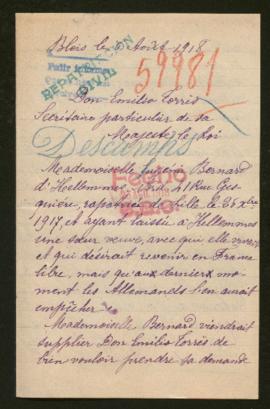 Blois le 5 Août 1918
59981
REPATRIATION
CIVIL
Don Emilio Torrès
Secrétaire particulier de sa
Majesté le Roi
Descamps
Mademoiselle Bernard
d'Hellemmes, Nord, 41 Rue
rapatriée de Lille le 28 Xbre
1917, et ayant laissée à Hellemmes
une sœur veuve, avec qui elle vivait
et qui désirait revenir en France
libre, mais qu'aux derniers mo-
ment les Allemands l'en aurait
empêcher.
Mademoiselle Bernard viendrait
supplier Don Emilio Torrès de
bien vouloir prendre sa demande